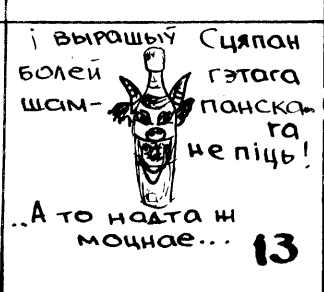 і вырашыў Сцяпан
болей гэтага
шам- панска-
га
не піць!
..А то надта ж
моцнае...
13